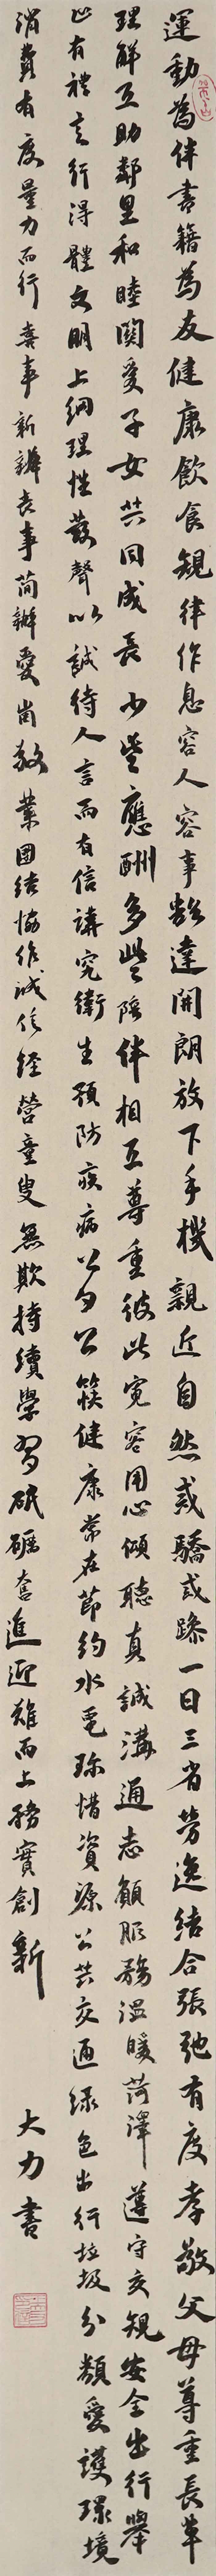 運動為伴書籍為友健康飲食規律作息容人容事豁達開朗放下手機親近自然戒驕戒躁一日三省勞逸結合張弛有度孝敬父母尊重長輩
理解互助鄰里和睦關愛子女共同成長少些應酬多些陪伴相互尊重彼此寬容用心傾聽真誠溝通志願服務溫暖菏澤遵守交規安全出行舉
止有禮言行得體文明上網理性發聲以誠待人言而有信講究衛生預防疾病公勺公筷健康常在節約水電珍惜資源公共交通綠色出行垃圾分類愛護環境
消費有度量力而行喜事新辦喪事簡辦愛崗敬業團結協作誠信經營童叟無欺持續學習砥礪奮進迎難而上務實創新
大力書